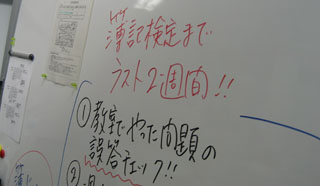 簿記検定まで
ラスト2週間!!
①教室でやった問題の
誤答チェック!!
②
簿